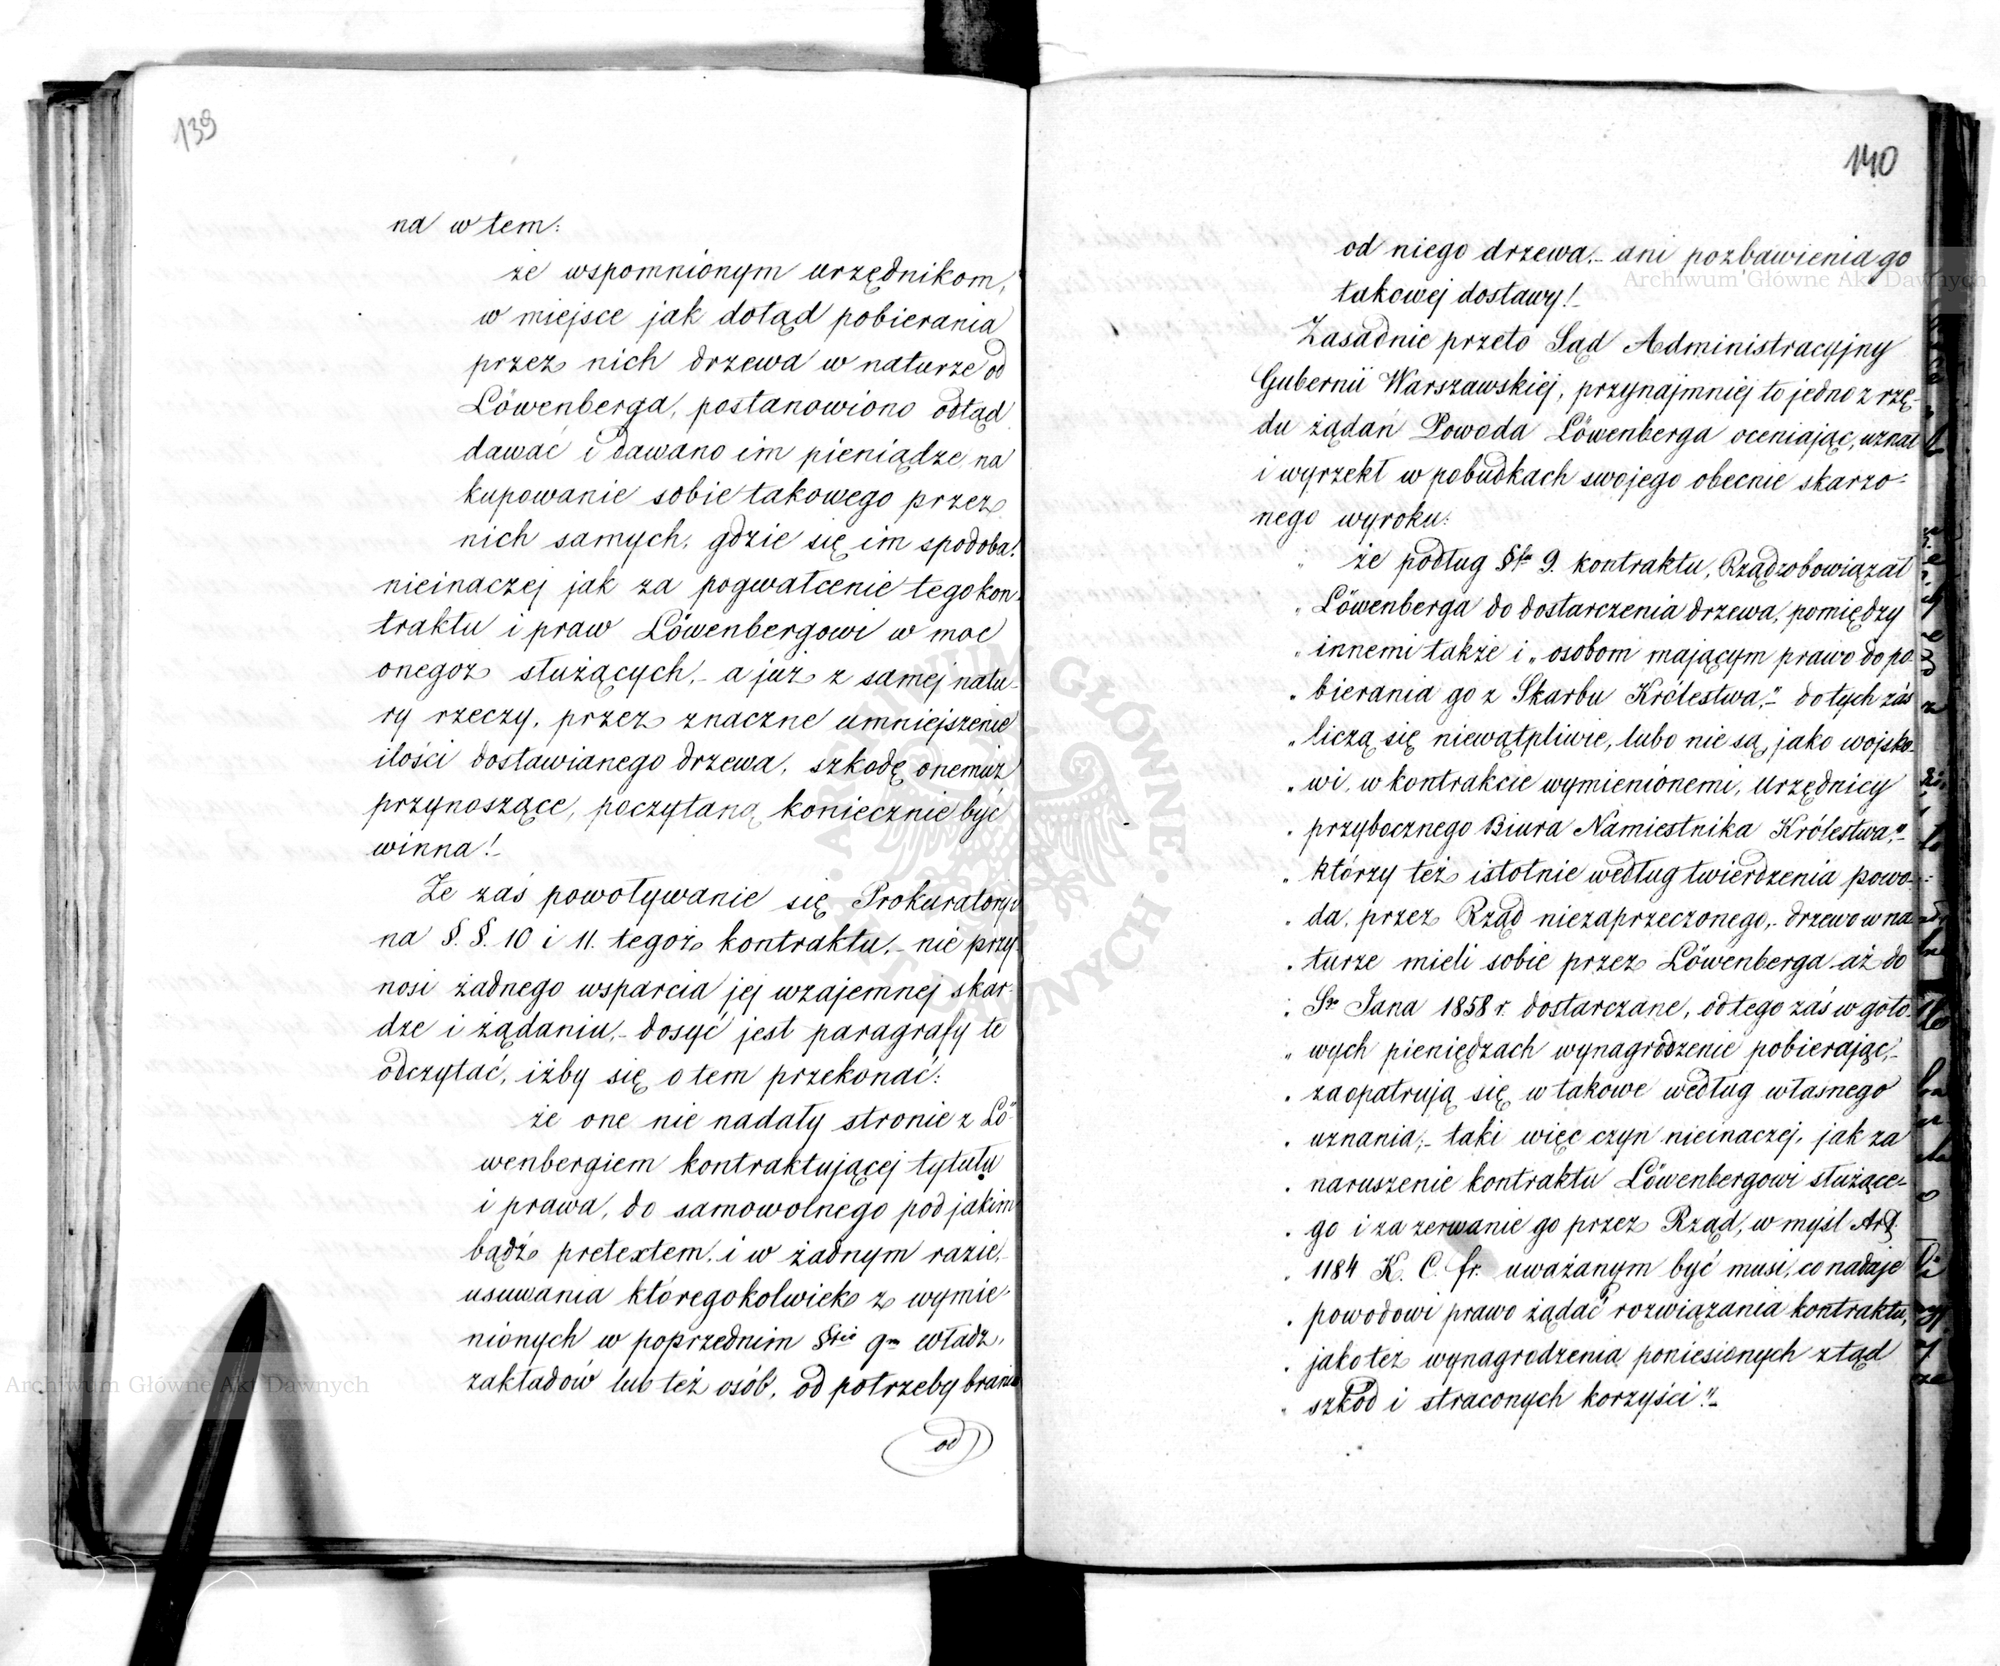 139
na w tem:
że wspomnionym urzędnikom,
w miejsce jak dotąd pobierania
przez nich drzewa w naturze od
Löwenberga, postanowiono odtąd
dawać i dawano im pieniądze na
kupowanie sobie takowego przez
nich samych, gdzie się im spodoba!
nieinaczej jak za pogwałcenie tego kon-
traktu i praw Löwenbergowi w moc
onegoż służących,- a już z samej natu-
ry rzeczy, przez znaczne umniejszenie
ilości dostawianego drzewa, szkodę onemuż
przynoszące, poczytaną koniecznie być
winna!-
Że zaś powoływanie się Prokuratoryi
na §. §. 10 i 11. tegoż kontraktu,- nie przy-
nosi żadnego wsparcia jej wzajemnej skar-
dze i żądaniu,- dosyć jest paragrafy te
odczytać, iżby się o tem przekonać:
że one nie nadały stronie z Lö-
wenbergiem kontraktującej tytułu
i prawa, do samowolnego pod jakim
bądź pretextem, i w żadnym razie,
usuwania któregokolwiek z wymie-
nionych w poprzednim §fie 9m władz,
zakładów lub też osób, od potrzeby brania
od
140
od niego drzewa,- ani pozbawienia go
takowej dostawy!-
Zasadnie przeto Sąd Administracyjny
Gubernii Warszawskiej, przynajmniej to jedno z rzę-
du żądań Powoda Löwenberga oceniając, uznał
i wyrzekł w pobudkach swojego obecnie skarżo-
nego wyroku:
" że podług §fu 9. kontraktu, Rząd zobowiązał
" Löwenberga do dostarczenia drzewa, pomiędzy
" innemi także i „osobom mającym prawo do po-
" bierania go z Skarbu Królestwa,"- do tych zaś
" liczą się niewątpliwie, lubo nie są, jako wojsko-
" wi, w kontrakcie wymienionemi, urzędnicy
" przybocznego Biura Namiestnika Królestwa,"-
" którzy też istotnie według twierdzenia powo-
" da, przez Rząd niezaprzeczonego,- drzewo w na-
" turze mieli sobie przez Löwenberga aż do
" Sgo Jana 1858 r. dostarczane, od tego zaś w goto-
" wych pieniędzach wynagrodzenie pobierając,-
" zaopatrują się w takowe według własnego
" uznania;- taki więc czyn nieinaczej, jak za
" naruszenie kontraktu Löwenbergowi służące-
" go i za zerwanie go przez Rząd, w myśl Art.
" 1184 K. C. fr. uważanym być musi, co nadaje
" powodowi prawo żądać rozwiązania kontraktu,
" jakoteż wynagrodzenia poniesionych ztąd
" szkód i straconych korzyści"!-
Archiwum Główne Akt Dawnych
Archiwum Główne Akt Dawnych